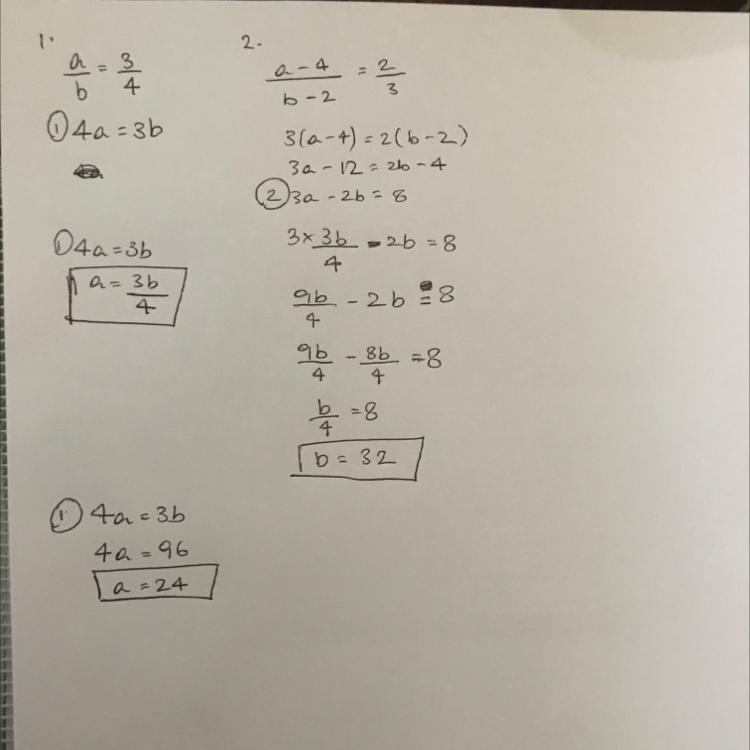 1.
a/b = 3/4
① 4a = 3b
① 4a = 3b
a = 3b/4
① 4a = 3b
4a = 96
a = 24
2.
(a - 4)/(b - 2) = 2/3
3(a - 4) = 2(b - 2)
3a - 12 = 2b - 4
② 3a - 2b = 8
3 × 3b/4 - 2b = 8
9b/4 - 2b = 8
9b/4 - 8b/4 = 8
b/4 = 8
b = 32